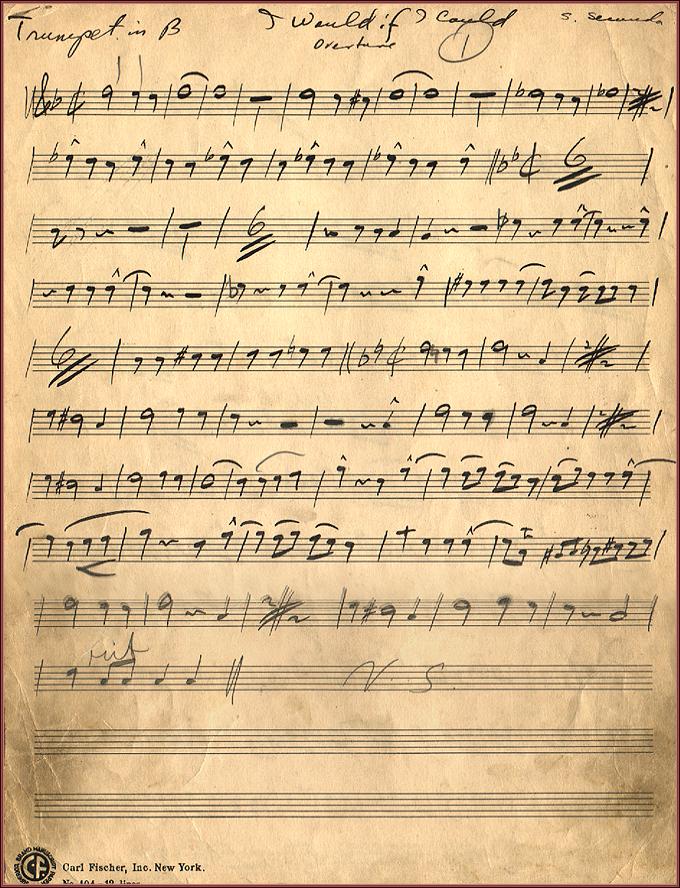 Trumpet in B
I Would if I Could
S. Secunda
Overture
1
6
6
6
rit
V. S.
BRAND MANUSCRIPT PAPER
CF
Carl Fischer, Inc. New York.
No. 104 — 12 lines